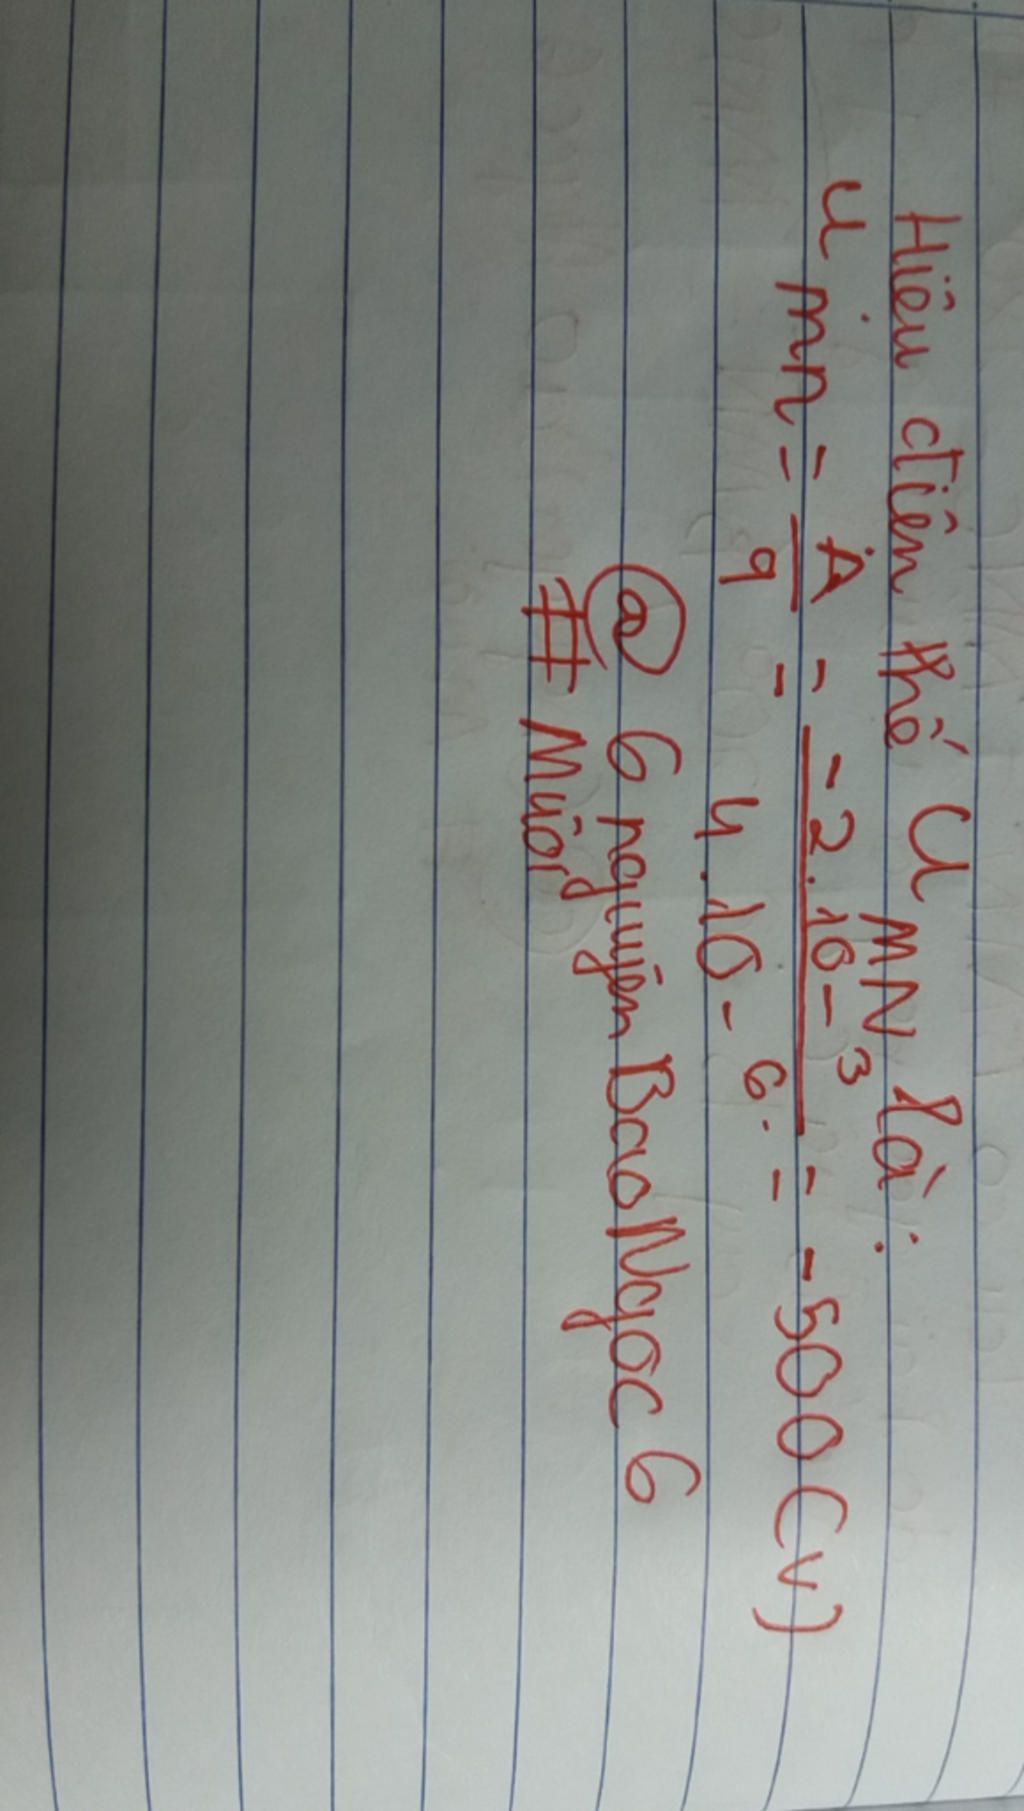 Hiệu điện thế U MN là:
U mn = A/q = -2.10-³/4.10-⁶ = -500 (V)
@ 6 nguyênBaoNgọc 6
# Muôn